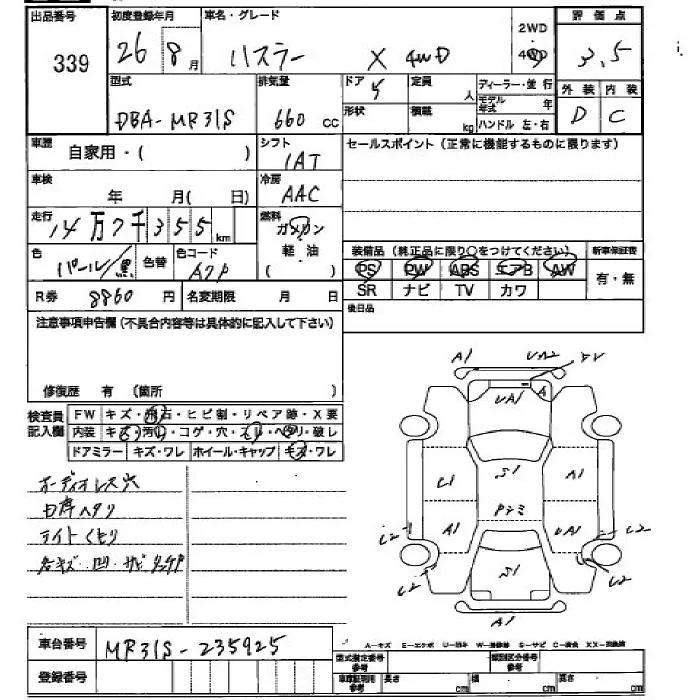 出品番号 初度登録年月 車名・グレード 評価点
339 26 8月 ハスラー X 4WD 2WD 4WD 3.5
型式 排気量 ドア 5 定員 人 ディーラー・並行 外装 内装
DBA-MR31S 660 cc 形状 積載 kg モデル年式 年 D C
ハンドル 左・右
車歴 自家用・( ) シフト 1AT セールスポイント(正常に機能するものに限ります)
車検 年 月( 日) 冷房 AAC
走行 14万7千355km 燃料 ガソリン
軽油
( )
色 パール/黒 色替 色コード 装備品(純正品に限り○をつけてください) 新車保証書
PS PW ABS エアB AW 有・無
R券 8860円 名変期限 月 日 SR ナビ TV カワ
注意事項申告欄(不具合内容等は具体的に記入して下さい) 後日品
修復歴 有 (箇所 )
検査員記入欄 FW キズ・飛石・ヒビ割・リペア跡・X要
内装 キズ・汚れ・コゲ・穴・スレ・ヘタリ・破レ
ドアミラー キズ・ワレ ホイール・キャップ キズ・ワレ
オーディオレス穴
ライトくもり
A1 UA2
UA1 A
C1 S1 A1
A1 UA1
S1
A1
車台番号 MR31S-235925
A-キズ E-エクボ
登録番号 型式指定番号 類別区分番号
長さ cm 幅 cm 高さ cm